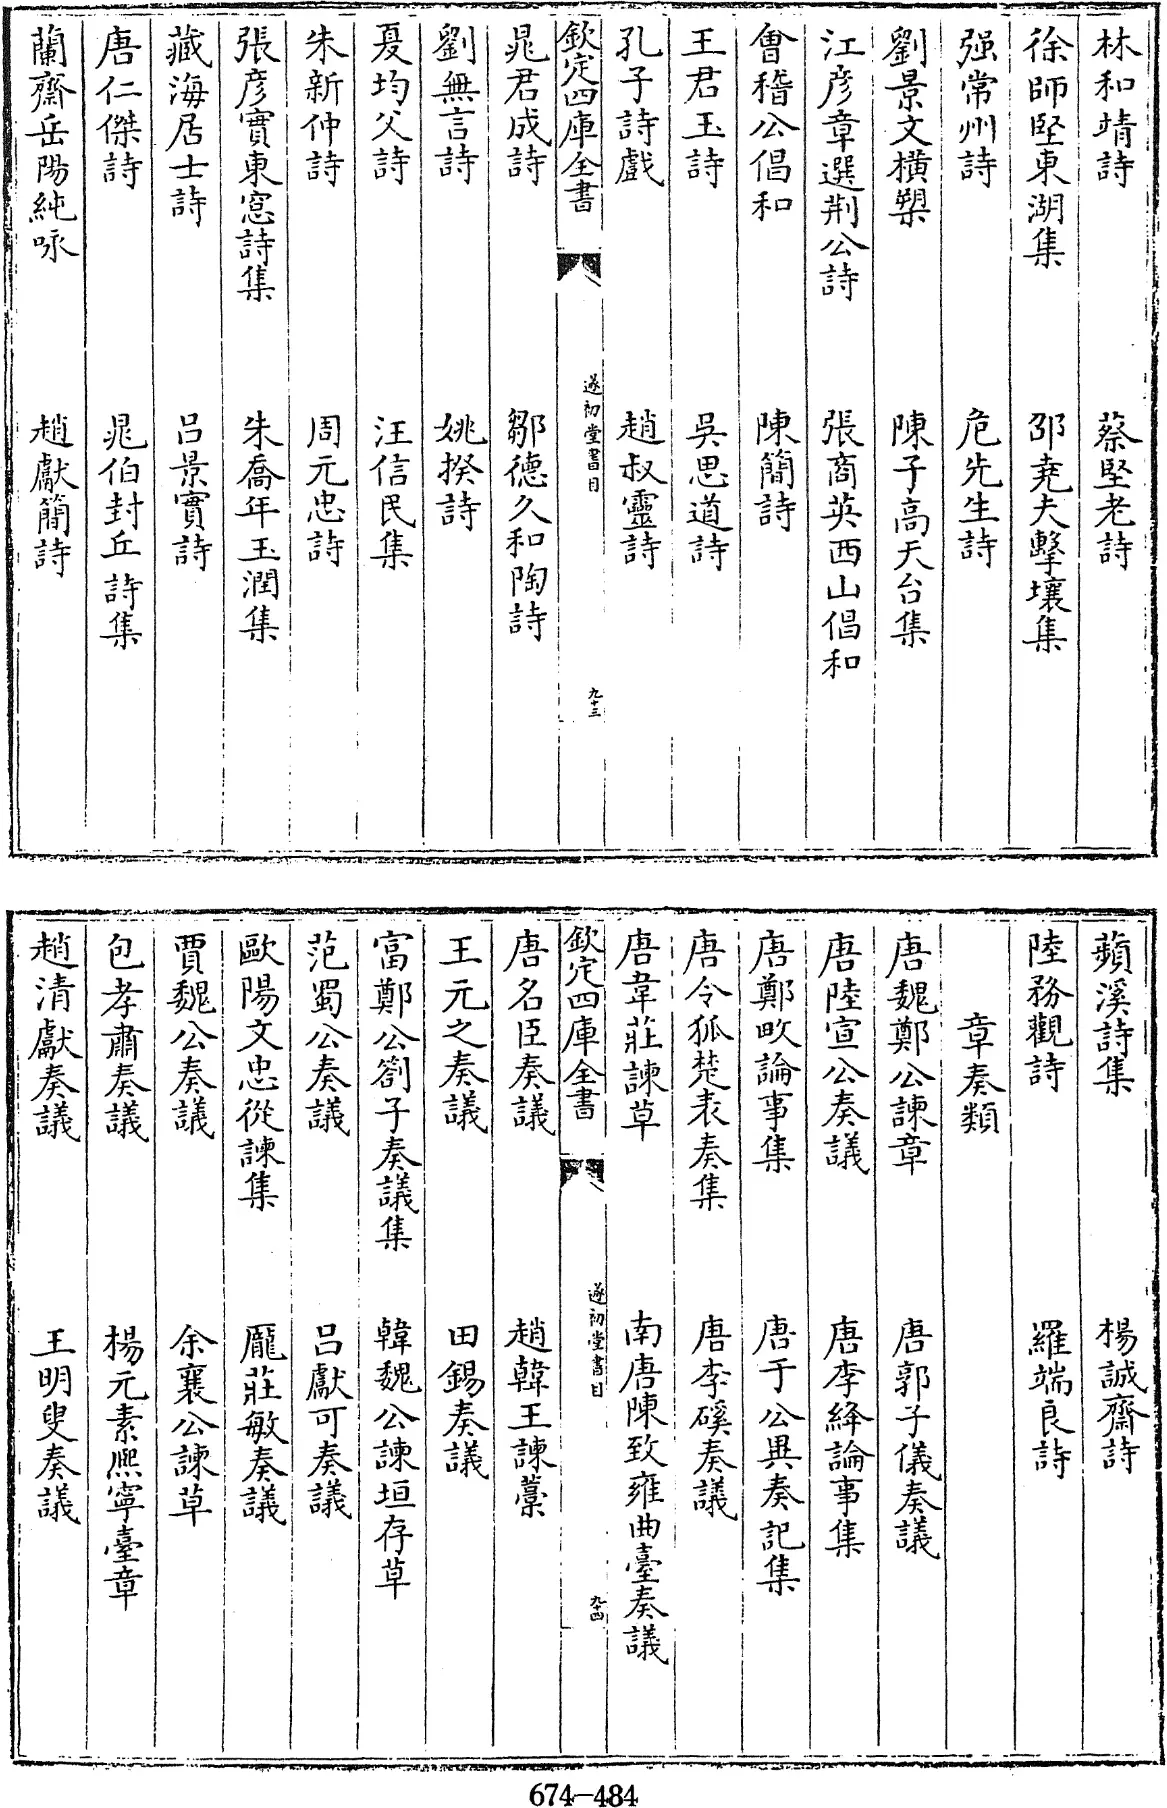 林和靖詩　蔡堅老詩
徐師堅東湖集　邵堯夫擊壤集
强常州詩　危先生詩
劉景文橫槊　陳子高天台集
江彦章選荆公詩　張商英西山倡和
㑹稽公倡和　陳簡詩
王君玉詩　吳思道詩
孔子詩戲　趙叔靈詩
欽定四庫全書　遂初堂書目　九十三
晁君成詩　鄒德久和陶詩
劉無言詩　姚揆詩
夏均父詩　汪信民集
朱新仲詩　周元忠詩
張彦實東窓詩集　朱喬年玉潤集
藏海居士詩　吕景實詩
唐仁傑詩　晁伯封丘詩集
蘭齋岳陽純咏　趙獻簡詩
蘋溪詩集　楊誠齋詩
陸務觀詩　羅端良詩
章奏類
唐魏鄭公諫章　唐郭子儀奏議
唐陸宣公奏議　唐李絳論事集
唐鄭畋論事集　唐于公異奏記集
唐令狐楚表奏集　唐李磎奏議
唐韋莊諫草　南唐陳致雍曲臺奏議
欽定四庫全書　遂初堂書目　九十四
唐名臣奏議　趙韓王諫藁
王元之奏議　田錫奏議
富鄭公劄子奏議集　韓魏公諫垣存草
范蜀公奏議　吕獻可奏議
歐陽文忠從諫集　龐莊敏奏議
賈魏公奏議　余襄公諫草
包孝肅奏議　楊元素熈寧臺章
趙清獻奏議　王明叟奏議
674-484